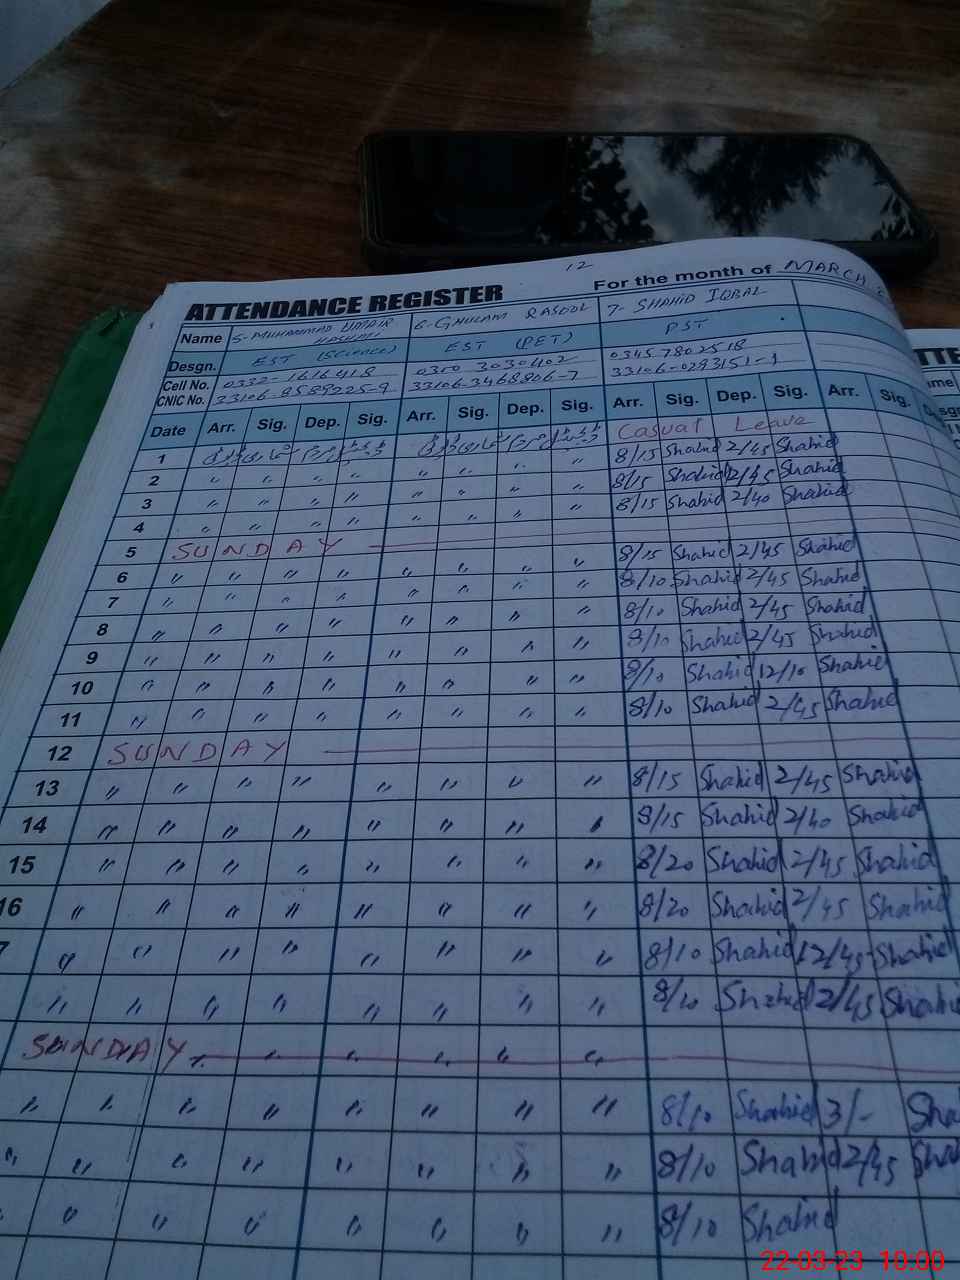 12
ATTENDANCE REGISTER For the month of MARCH
Name 5-MUHAMMAD UMAIR HASHMI 6-GHULAM RASOOL 7-SHAHID IQBAL
Desgn. EST (Science) EST (PET) PST
Cell No. 0332-1616418 0300 3030402 0345 7802518
CNIC No. 33106-8589225-9 33106-3468806-7 33106-0293151-1
Date Arr. Sig. Dep. Sig. Arr. Sig. Dep. Sig. Arr. Sig. Dep. Sig. Arr. Sig.
1 Casual Leave
2 〃 〃 〃 〃 〃 〃 〃 〃 8/15 Shahid 2/45 Shahid
3 〃 〃 〃 〃 〃 〃 〃 〃 8/15 Shahid 2/45 Shahid
4 〃 〃 〃 〃 〃 〃 〃 〃 8/15 Shahid 2/40 Shahid
5 SUNDAY
6 〃 〃 〃 〃 〃 〃 〃 〃 8/15 Shahid 2/45 Shahid
7 〃 〃 〃 〃 〃 〃 〃 〃 8/10 Shahid 2/45 Shahid
8 〃 〃 〃 〃 〃 〃 〃 〃 8/10 Shahid 2/45 Shahid
9 〃 〃 〃 〃 〃 〃 〃 〃 8/10 Shahid 2/45 Shahid
10 〃 〃 〃 〃 〃 〃 〃 〃 8/10 Shahid 12/10 Shahid
11 〃 〃 〃 〃 〃 〃 〃 〃 8/10 Shahid 2/45 Shahid
12 SUNDAY
13 〃 〃 〃 〃 〃 〃 〃 〃 8/15 Shahid 2/45 Shahid
14 〃 〃 〃 〃 〃 〃 〃 〃 8/15 Shahid 2/40 Shahid
15 〃 〃 〃 〃 〃 〃 〃 〃 8/20 Shahid 2/45 Shahid
16 〃 〃 〃 〃 〃 〃 〃 〃 8/20 Shahid 2/45 Shahid
7 〃 〃 〃 〃 〃 〃 〃 〃 8/10 Shahid 12/45 Shahid
〃 〃 〃 〃 〃 〃 〃 〃 8/10 Shahid 2/45 Shahid
SUNDAY 〃 〃 〃 〃 〃 〃
〃 〃 〃 〃 〃 〃 〃 〃 8/10 Shahid 3/- Sha
〃 〃 〃 〃 〃 〃 〃 〃 8/10 Shahid 2/45 Shah
〃 〃 〃 〃 〃 〃 〃 8/10 Shahid
22-03-23 10:00